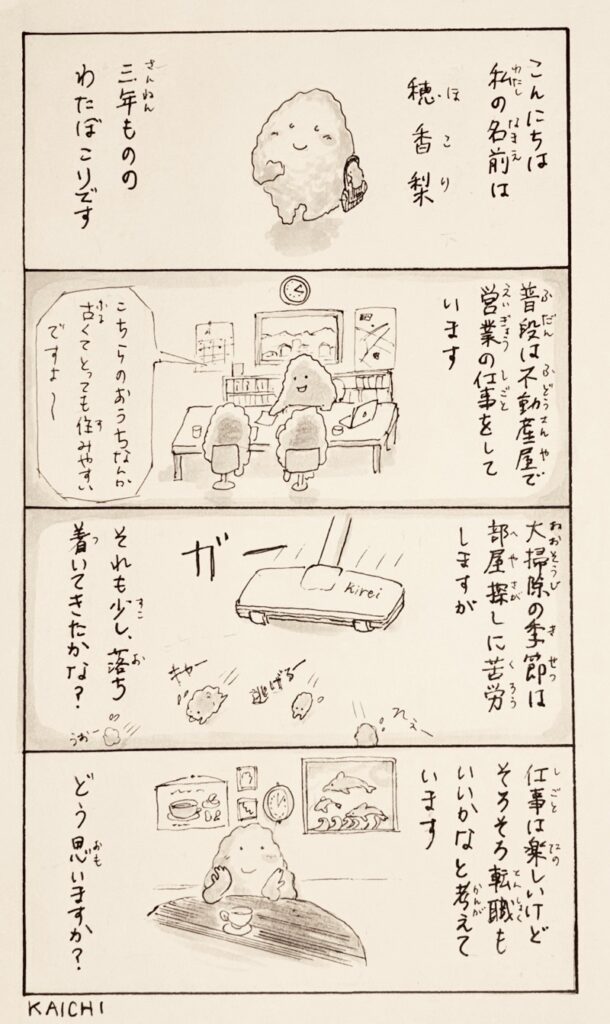 こんにちは
私の名前は
穂香梨
三年ものの
わたぼこりです
普段は不動産屋で
営業の仕事をして
います
こちらのおうちなんか
古くてとっても住みやすい
ですよ～
大掃除の季節は
部屋探しに苦労
しますが
ガー
Kirei
キャー
逃げろー
うおー
それも少し、落ち
着いてきたかな？
仕事は楽しいけど
そろそろ転職も
いいかなと考えて
います
どう思いますか？
KAICHI